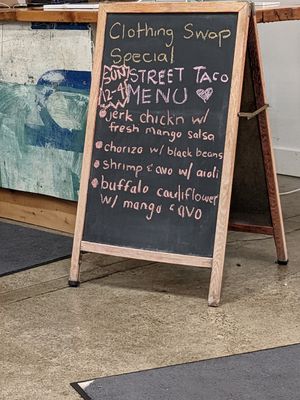 Clothing Swap
Special
SUN STREET TACO
12-4 MENU
jerk chickn w/
fresh mango salsa
chorizo w/ black beans
shrimp & avo w/ aioli
buffalo cauliflower
w/ mango & avo